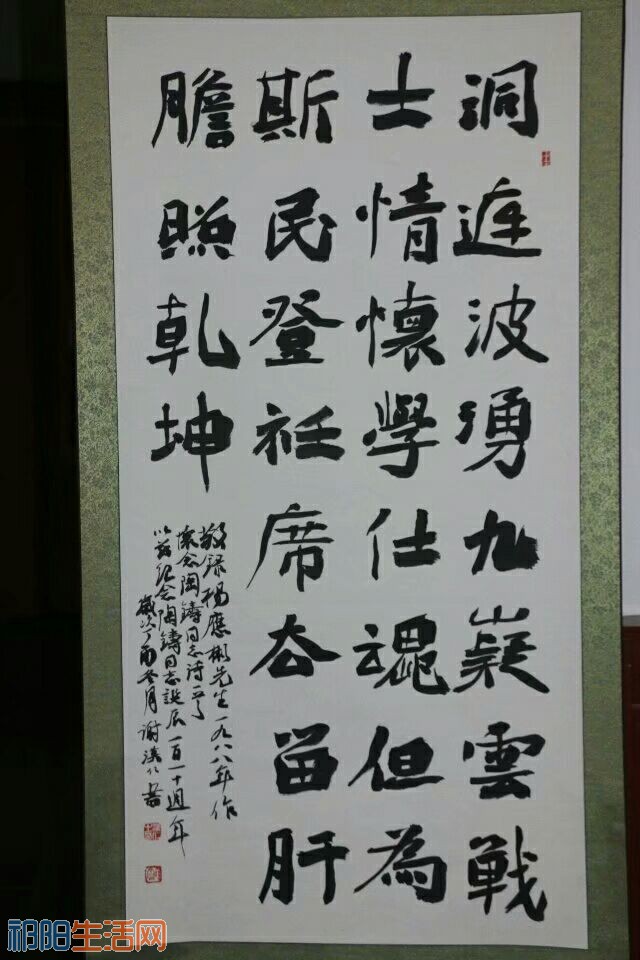 洞庭波湧九嶷雲戰
士情懷學仕魂但為
斯民登衽席公留肝
膽照乾坤
敬録楊應彬先生一九八八年作
懷念陶鑄同志詩一首
以茲紀念陶鑄同志誕辰一百一十週年
歲次丁酉冬月謝 書
祁阳生活网